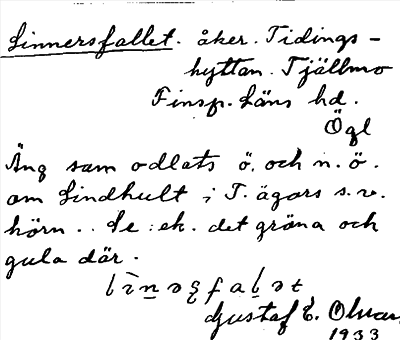 Linnersfallet. åker. Tidings-
hyttan. Tjällmo
Finsp. Läns hd.
Ögl
Äng som odlats ö. och n. ö.
om Lindhult i T. ägors s.v.
hörn.. Se: ek. det gröna och
gula där.
Gustaf E.
1933